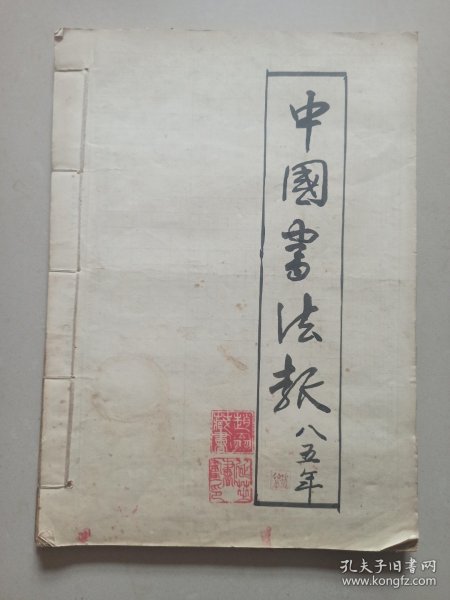 中國書法報
八五年
孔夫子旧书网
www.kongfz.com